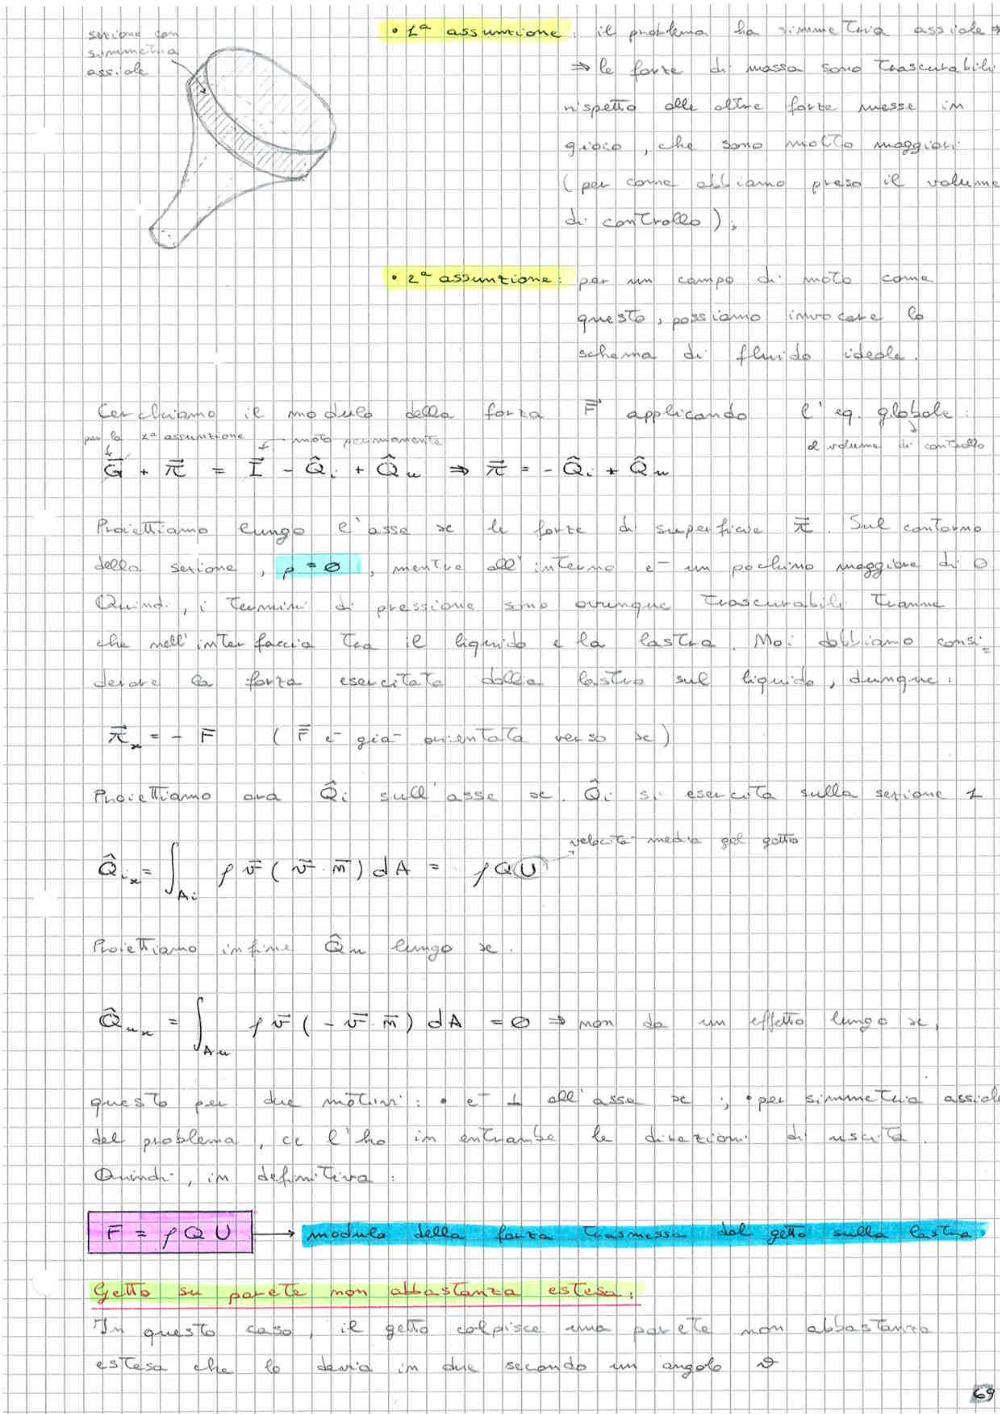 sezione con
simmetria
assiale
• 1ª assunzione: il problema ha simmetria assiale →
⇒ le forze di massa sono trascurabili
rispetto alle altre forze messe in
gioco, che sono molto maggiori
(per come abbiamo preso il volume
di controllo);
• 2ª assunzione: per un campo di moto come
questo, possiamo invocare lo
schema di fluido ideale.
Cerchiamo il modulo della forza F⃗ applicando l'eq. globale:
per la 1ª assunzione moto permanente al volume di controllo
G⃗ + π⃗ = I⃗ - Q̂i + Q̂u ⇒ π⃗ = - Q̂i + Q̂u
Proiettiamo lungo l'asse x le forze di superficie π⃗. Sul contorno
della sezione, p = 0, mentre all'interno è un pochino maggiore di 0
Quindi, i termini di pressione sono ovunque trascurabili tranne
che nell'interfaccia tra il liquido e la lastra. Noi dobbiamo consi=
derare la forza esercitata dalla lastra sul liquido, dunque:
π⃗x = - F (F⃗ è già orientata verso x)
Proiettiamo ora Q̂i sull'asse x. Q̂i si esercita sulla sezione 1
velocità media del getto
Q̂ix = ∫Ai ρ v̄ ( v̄ · n̄ ) dA = ρQU
Proiettiamo infine Q̂u lungo x.
Q̂ux = ∫Au ρ v̄ ( - v̄ · n̄ ) dA = 0 ⇒ non da un effetto lungo x,
questo per due motivi: • è ⊥ all'asse x ; • per simmetria assiale
del problema, ce l'ho in entrambe le direzioni di uscita.
Quindi, in definitiva:
F = ρ Q U → modulo della forza trasmessa dal getto sulla lastra.
Getto su parete non abbastanza estesa:
In questo caso, il getto colpisce una parete non abbastanza
estesa che lo devia in due secondo un angolo ϑ
69